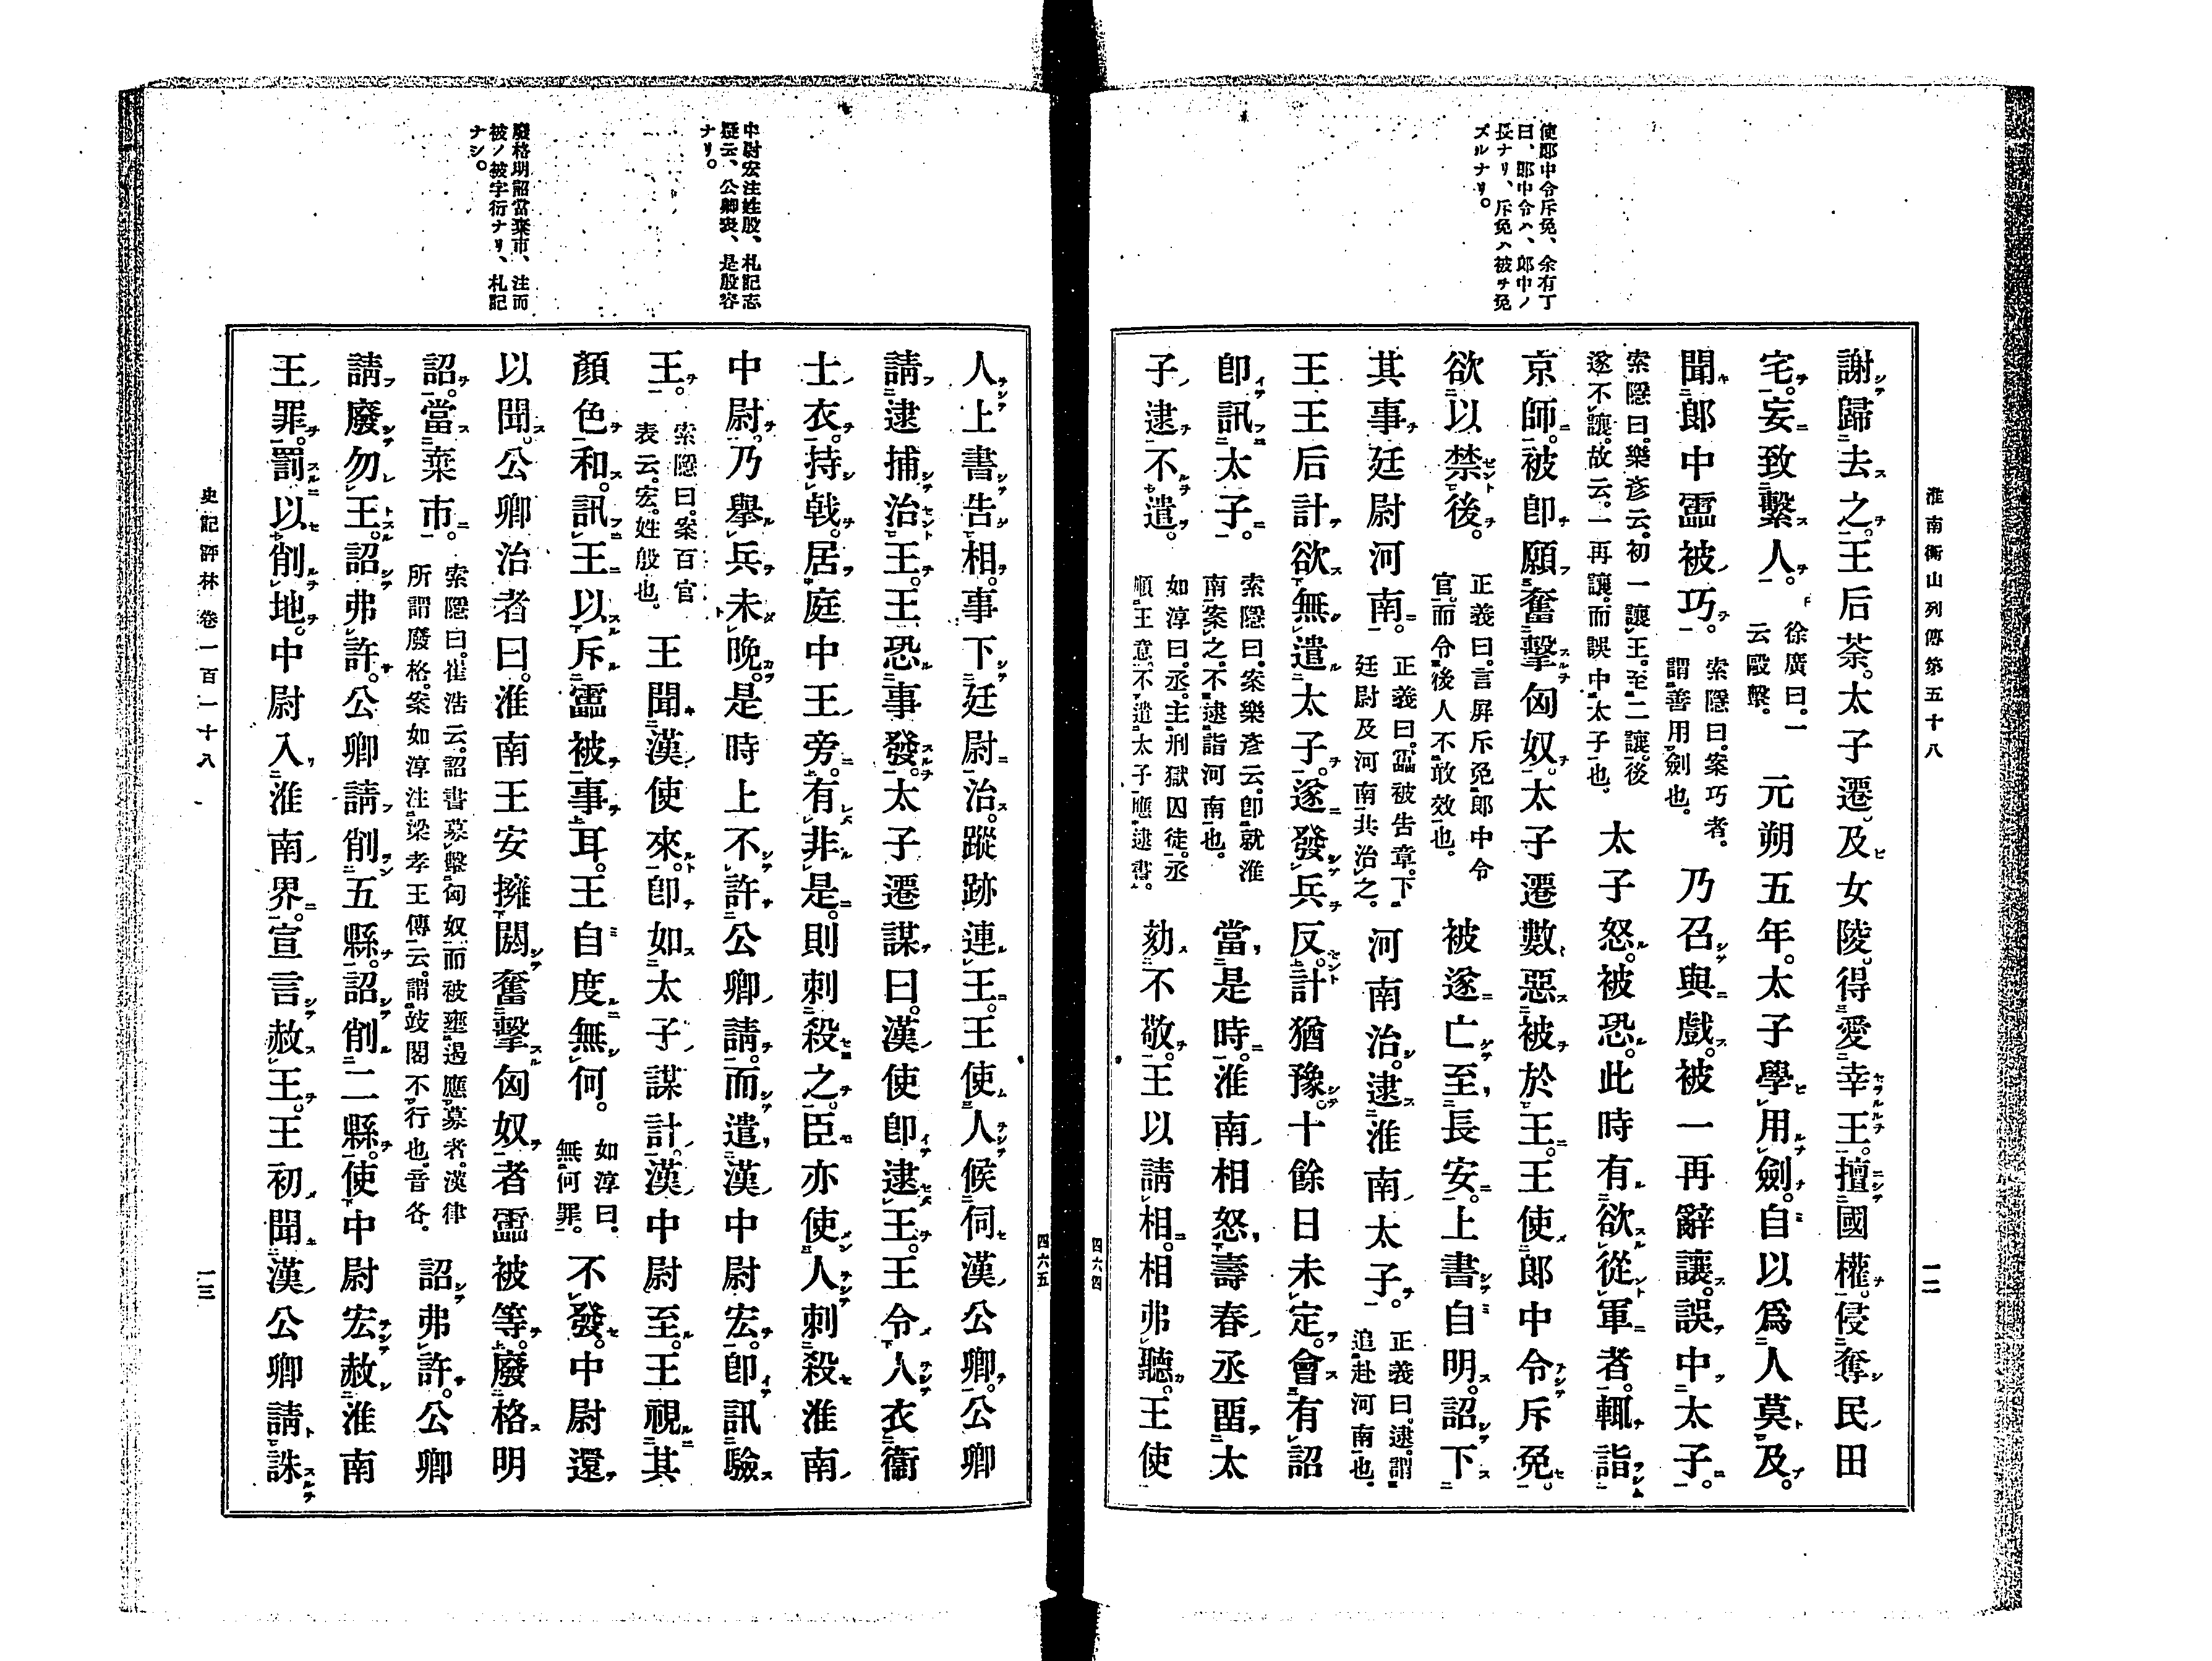 淮南衡山列傳第五十八
一二
使郎中令斥免、余有丁
曰、郎中令ハ、郎中ノ
長ナリ、斥免ハ被ヲ免
ズルナリ。
謝歸去之。王后荼。太子遷。及女陵。得愛幸王。擅國權。侵奪民田
宅。妄致繫人。徐廣曰。一云毆擊。元朔五年。太子學用劍。自以爲人莫及。
聞郎中靁被巧。索隱曰。案巧者。謂善用劍也。乃召與戲。被一再辭讓。誤中太子。
索隱曰。樂彦云。初一讓王。至二讓。後遂不讓。故云。一再讓。而誤中太子也。太子怒。被恐。此時有欲從軍者。輒詣
京師。被卽願奮擊匈奴。太子遷數惡被於王。王使郎中令斥免。
欲以禁後。正義曰。言屏斥免郎中令官。而令後人不敢效也。被遂亡至長安。上書自明。詔下
其事廷尉河南。正義曰。靁被告章。下廷尉及河南共治之。河南治。逮淮南太子。正義曰。逮。謂追赴河南也。
王王后計欲無遣太子。遂發兵反。計猶豫。十餘日未定。會有詔
卽訊太子。索隱曰。案樂彦云。卽就淮南案之。不逮詣河南也。當是時。淮南相怒壽春丞畱太
子逮不遣。如淳曰。丞。主刑獄囚徒。丞順王意。不遣太子應逮書。劾不敬。王以請相。相弗聽。王使
四六四
四六五
中尉宏注姓殷、札記志
疑云、公卿表、是殷容
ナリ。
廢格明詔當棄市、注而
被ノ被字衍ナリ、札記
ナシ。
人上書告相。事下廷尉治。蹤跡連王。王使人候伺漢公卿。公卿
請逮捕治王。王恐事發。太子遷謀曰。漢使卽逮王。王令人衣衞
士衣。持戟。居庭中王旁。有非是。則刺殺之。臣亦使人刺殺淮南
中尉。乃舉兵未晚。是時上不許公卿請。而遣漢中尉宏。卽訊驗
王。索隱曰。案百官表云。宏。姓殷也。王聞漢使來。卽如太子謀計。漢中尉至。王視其
顏色和。訊王以斥靁被事耳。王自度無何。如淳曰。無何罪。不發。中尉還
以聞。公卿治者曰。淮南王安擁閼奮擊匈奴者靁被等。廢格明
詔。當棄市。索隱曰。崔浩云。詔書募擊匈奴。而被壅遏應募者。漢律所謂廢格。案如淳注梁孝王傳云。謂攱閣不行也。音各。詔弗許。公卿
請廢勿王。詔弗許。公卿請削五縣。詔削二縣。使中尉宏赦淮南
王罪。罰以削地。中尉入淮南界。宣言赦王。王初聞漢公卿請誅
史記評林 卷一百一十八
一三